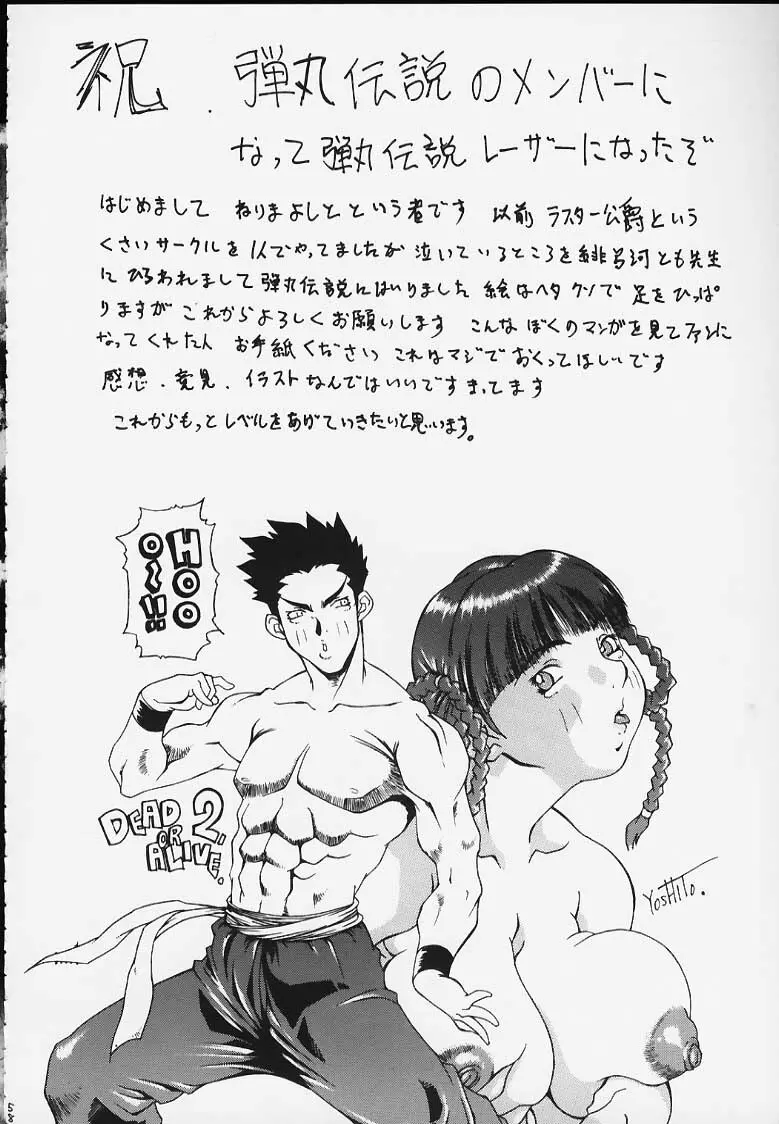 祝. 弾丸伝説のメンバーに
なって弾丸伝説レーザーになったぞ
はじめまして ねりまよしとという者です 以前 ラスター公爵という
くさいサークルを1人でやってましたが泣いているところを緋呂河とも先生
にひろわれまして弾丸伝説にはいりました 絵はヘタクソで足をひっぱ
りますがこれからよろしくお願いします こんなぼくのマンガを見てファンに
なってくれた人 お手紙ください これはマジでおくってほしいです
感想.意見.イラストなんでもいいですまってます
これからもっとレベルをあげていきたいと思います。
HOO
O~!!
DEAD
OR
ALIVE.
2.
YosHiTo.
58